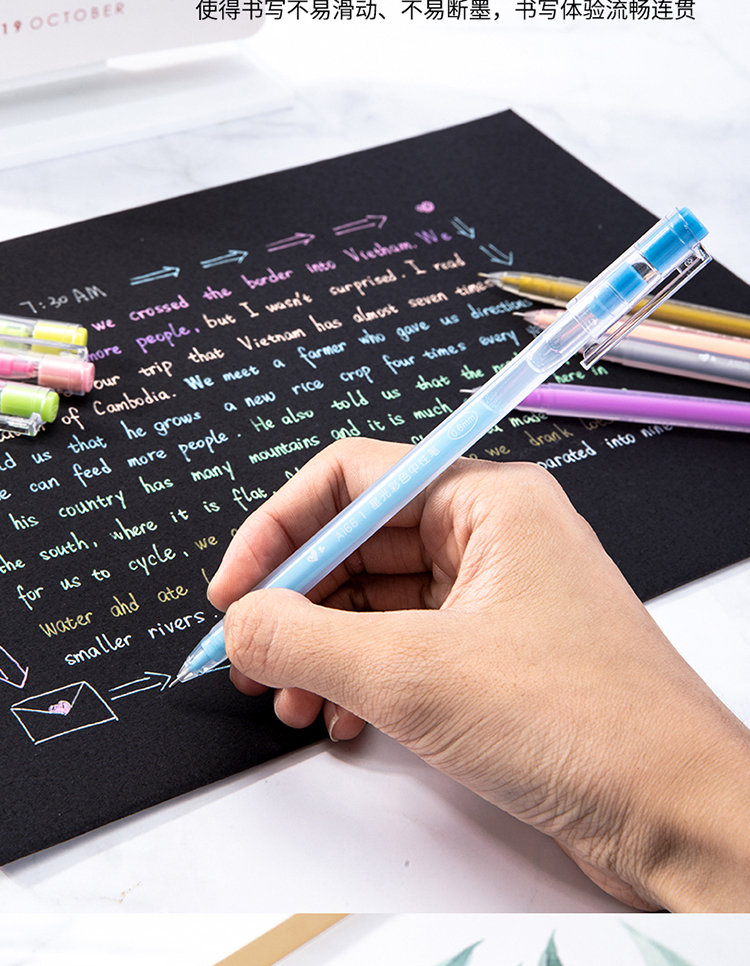 使得书写不易滑动、不易断墨，书写体验流畅连贯
19 OCTOBER
7:30 AM
we crossed the border into Vietnam. We
more people, but I wasn't surprised. I read
our trip that Vietnam has almost seven times
of Cambodia. We meet a farmer who gave us directions
us that he grows a new rice crop four times every
can feed more people. He also told us that the here in
his country has many mountains and it is much
the south, where it is flat. we drank
for us to cycle, we into nine
water and ate
smaller rivers.
0.6mm
A1661 星光彩色中性笔